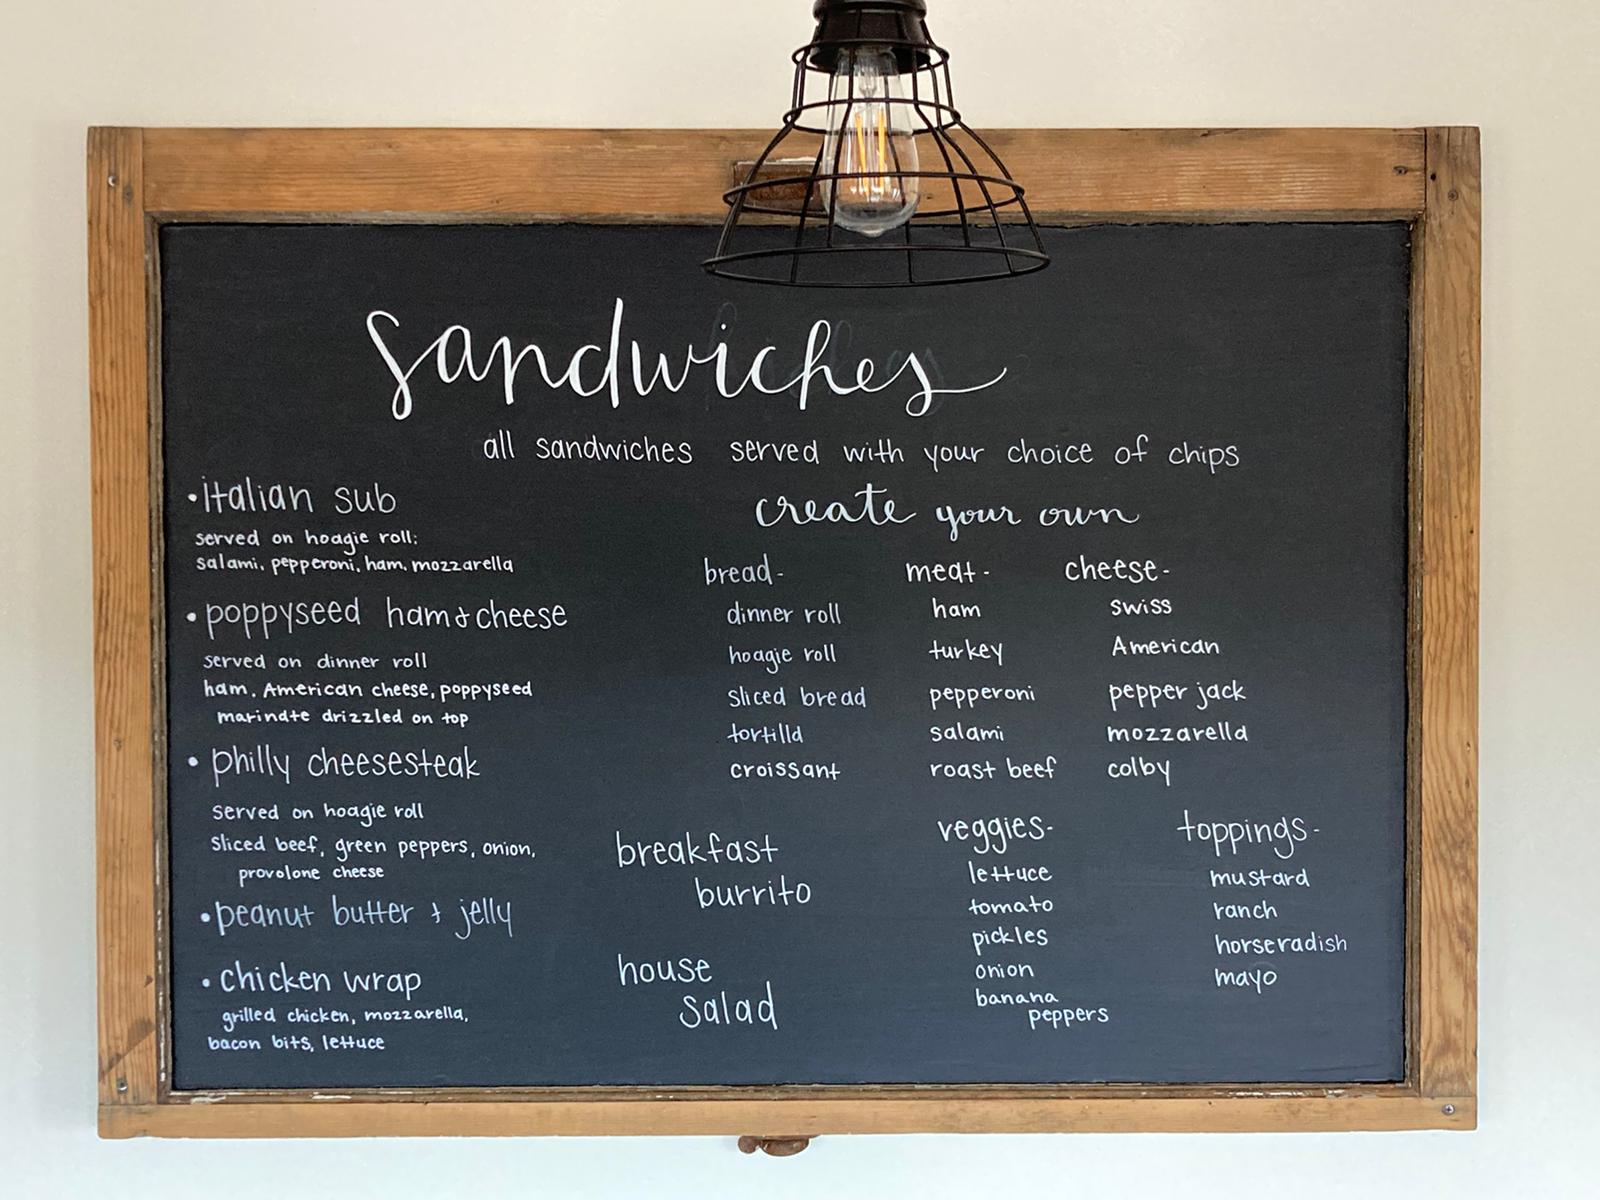 sandwiches
all sandwiches served with your choice of chips
•italian sub
served on hoagie roll:
salami, pepperoni, ham, mozzarella
•poppyseed ham & cheese
served on dinner roll
ham, American cheese, poppyseed
marinate drizzled on top
•philly cheesesteak
served on hoagie roll
sliced beef, green peppers, onion,
provolone cheese
•peanut butter + jelly
•chicken wrap
grilled chicken, mozzarella,
bacon bits, lettuce
breakfast
burrito
house
salad
create your own
bread-
dinner roll
hoagie roll
sliced bread
tortilla
croissant
meat-
ham
turkey
pepperoni
salami
roast beef
cheese-
swiss
American
pepper jack
mozzarella
colby
veggies-
lettuce
tomato
pickles
onion
banana
peppers
toppings-
mustard
ranch
horseradish
mayo